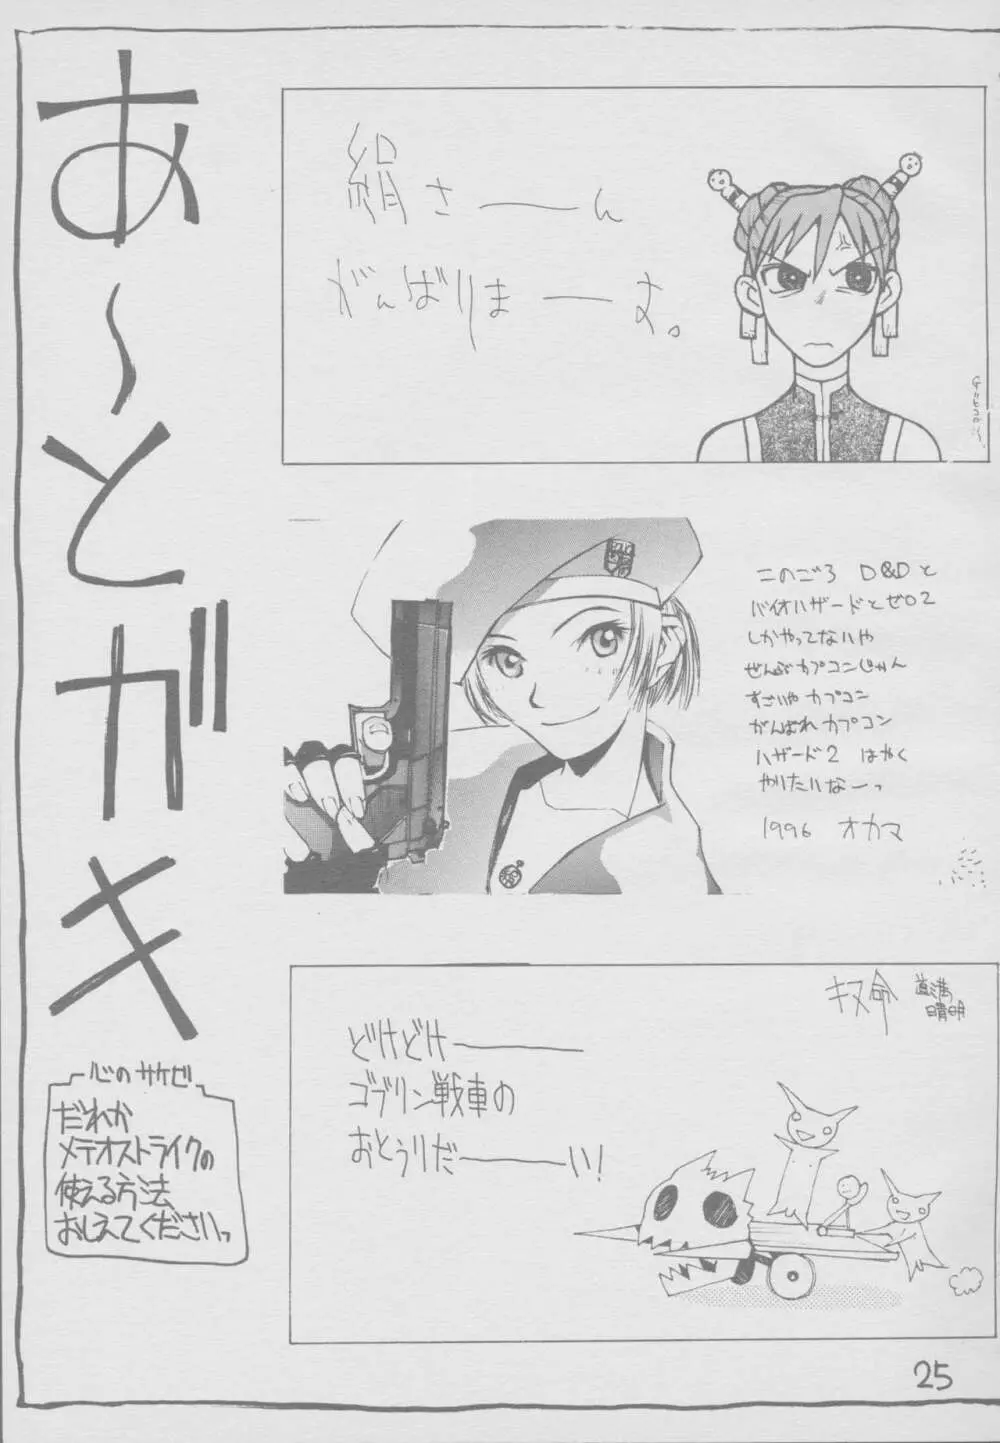 あ〜とガキ
絹さーーん
がんばりまーーす。
このごろ D&Dと
バイオハザードとゼロ2
しかやってないや
ぜんぶカプコンじゃん
すごいやカプコン
がんばれカプコン
ハザード2 はやく
やりたいなーっ
1996 オカマ
道満
晴明
どけどけーーー
ゴブリン戦車の
おとうりだーーーい!
心のサケビ
だれか
メテオストライクの
使える方法
おしえてくださいっ
25